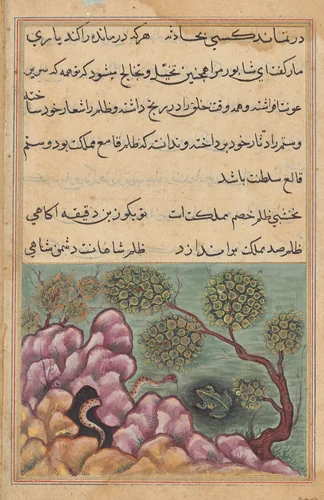 در نماند کسی بحادثهٔ هرکه درمانده را کند یاری
مار گفت ای شاپور مرا همچنین تخیل و تخالج میشود که تو همه که سر بر
عونت افراشته و همه وقت خلق را در رنج داشته و ظلم را شعار خود ساخته
وستم را دثار خود پرداخته و ندانسته که ظلم قامع مملکت بود و ستم
قالع سلطنت باشد
نخشبی ظلم خصم مملکت است تو بکوزین دقیقه آکاهی
ظلم صد مملکت براندازد ظلم شاهانت دشمن شاهی